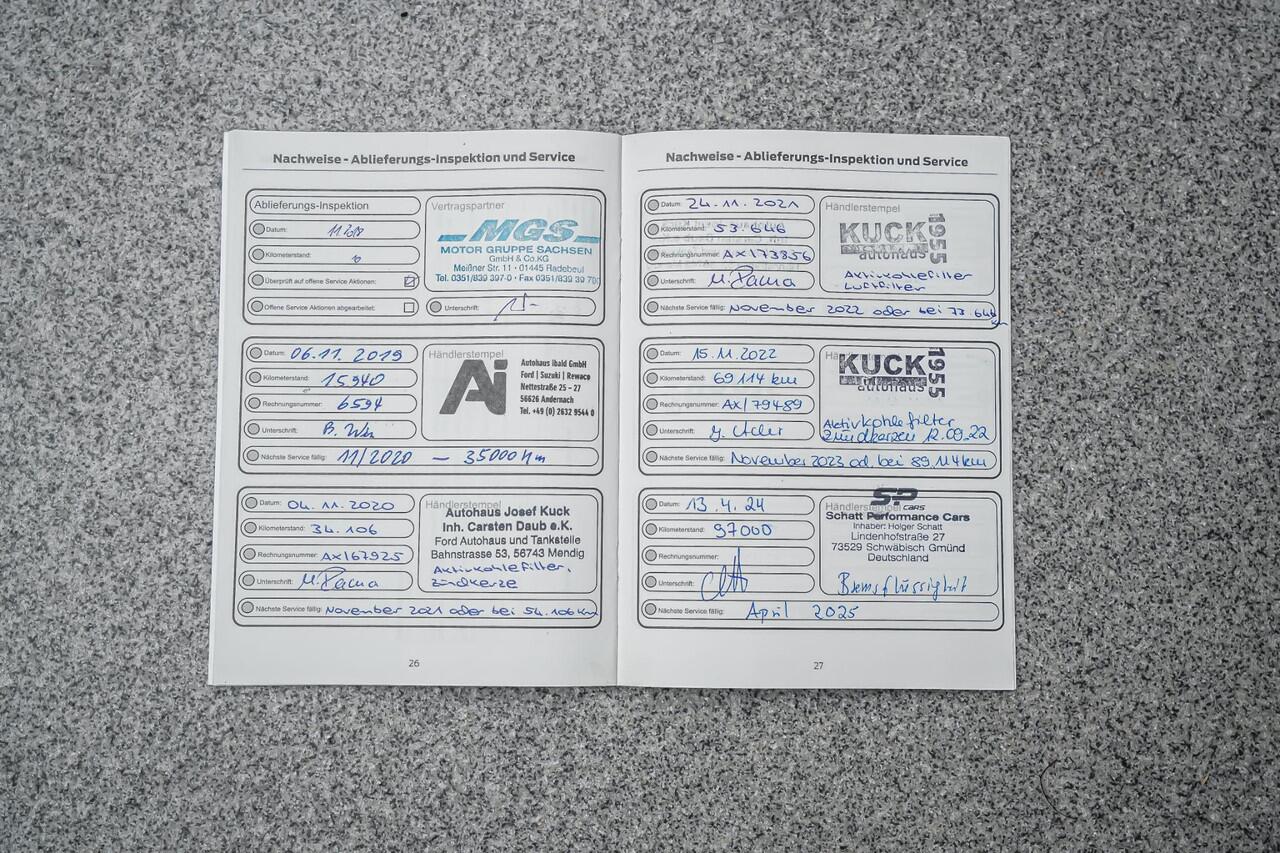 Nachweise - Ablieferungs-Inspektion und Service
Ablieferungs-Inspektion
Datum:
Kilometerstand:
Überprüft auf offene Service Aktionen:
Offene Service Aktionen abgearbeitet:
Vertragspartner
MGS
MOTOR GRUPPE SACHSEN
GmbH & Co.KG
Meißner Str. 11 · 01445 Radebeul
Tel. 0351/839 397-0 · Fax 0351/839 39 70
Unterschrift:
Datum: 06.11.2019
Kilometerstand: 15940
Rechnungsnummer: 6594
Unterschrift:
Händlerstempel
Ai
Autohaus ibald GmbH
Ford | Suzuki | Rewaco
Nettestraße 25 - 27
56626 Andernach
Tel. +49 (0) 2632 9544 0
Nächste Service fällig: 11/2020 - 35000 km
Datum: 04.11.2020
Kilometerstand: 34.106
Rechnungsnummer: Ax167925
Unterschrift:
Händlerstempel
Autohaus Josef Kuck
Inh. Carsten Daub e.K.
Ford Autohaus und Tankstelle
Bahnstrasse 53, 56743 Mendig
Aktivkohlefilter,
Zündkerze
Nächste Service fällig: November 2021 oder bei 54.106 km
26
Nachweise - Ablieferungs-Inspektion und Service
Datum: 24.11.2021
Kilometerstand: 53646
Rechnungsnummer: Ax173856
Unterschrift:
Händlerstempel
KUCK
autohaus
1955
Aktivkohlefilter
Luftfilter
Nächste Service fällig: November 2022 oder bei 73.646 km
Datum: 15.11.2022
Kilometerstand: 69114 km
Rechnungsnummer: Ax179489
Unterschrift:
KUCK
autohaus
1955
Aktivkohlefilter
Zündkerzen 12.09.22
Nächste Service fällig: November 2023 od. bei 89.114 km
Datum: 13.4.24
Kilometerstand: 97000
Rechnungsnummer:
Unterschrift:
SP
CARS
Schatt Performance Cars
Inhaber: Holger Schatt
Lindenhofstraße 27
73529 Schwäbisch Gmünd
Deutschland
Bremsflüssigkeit
Nächste Service fällig: April 2025
27